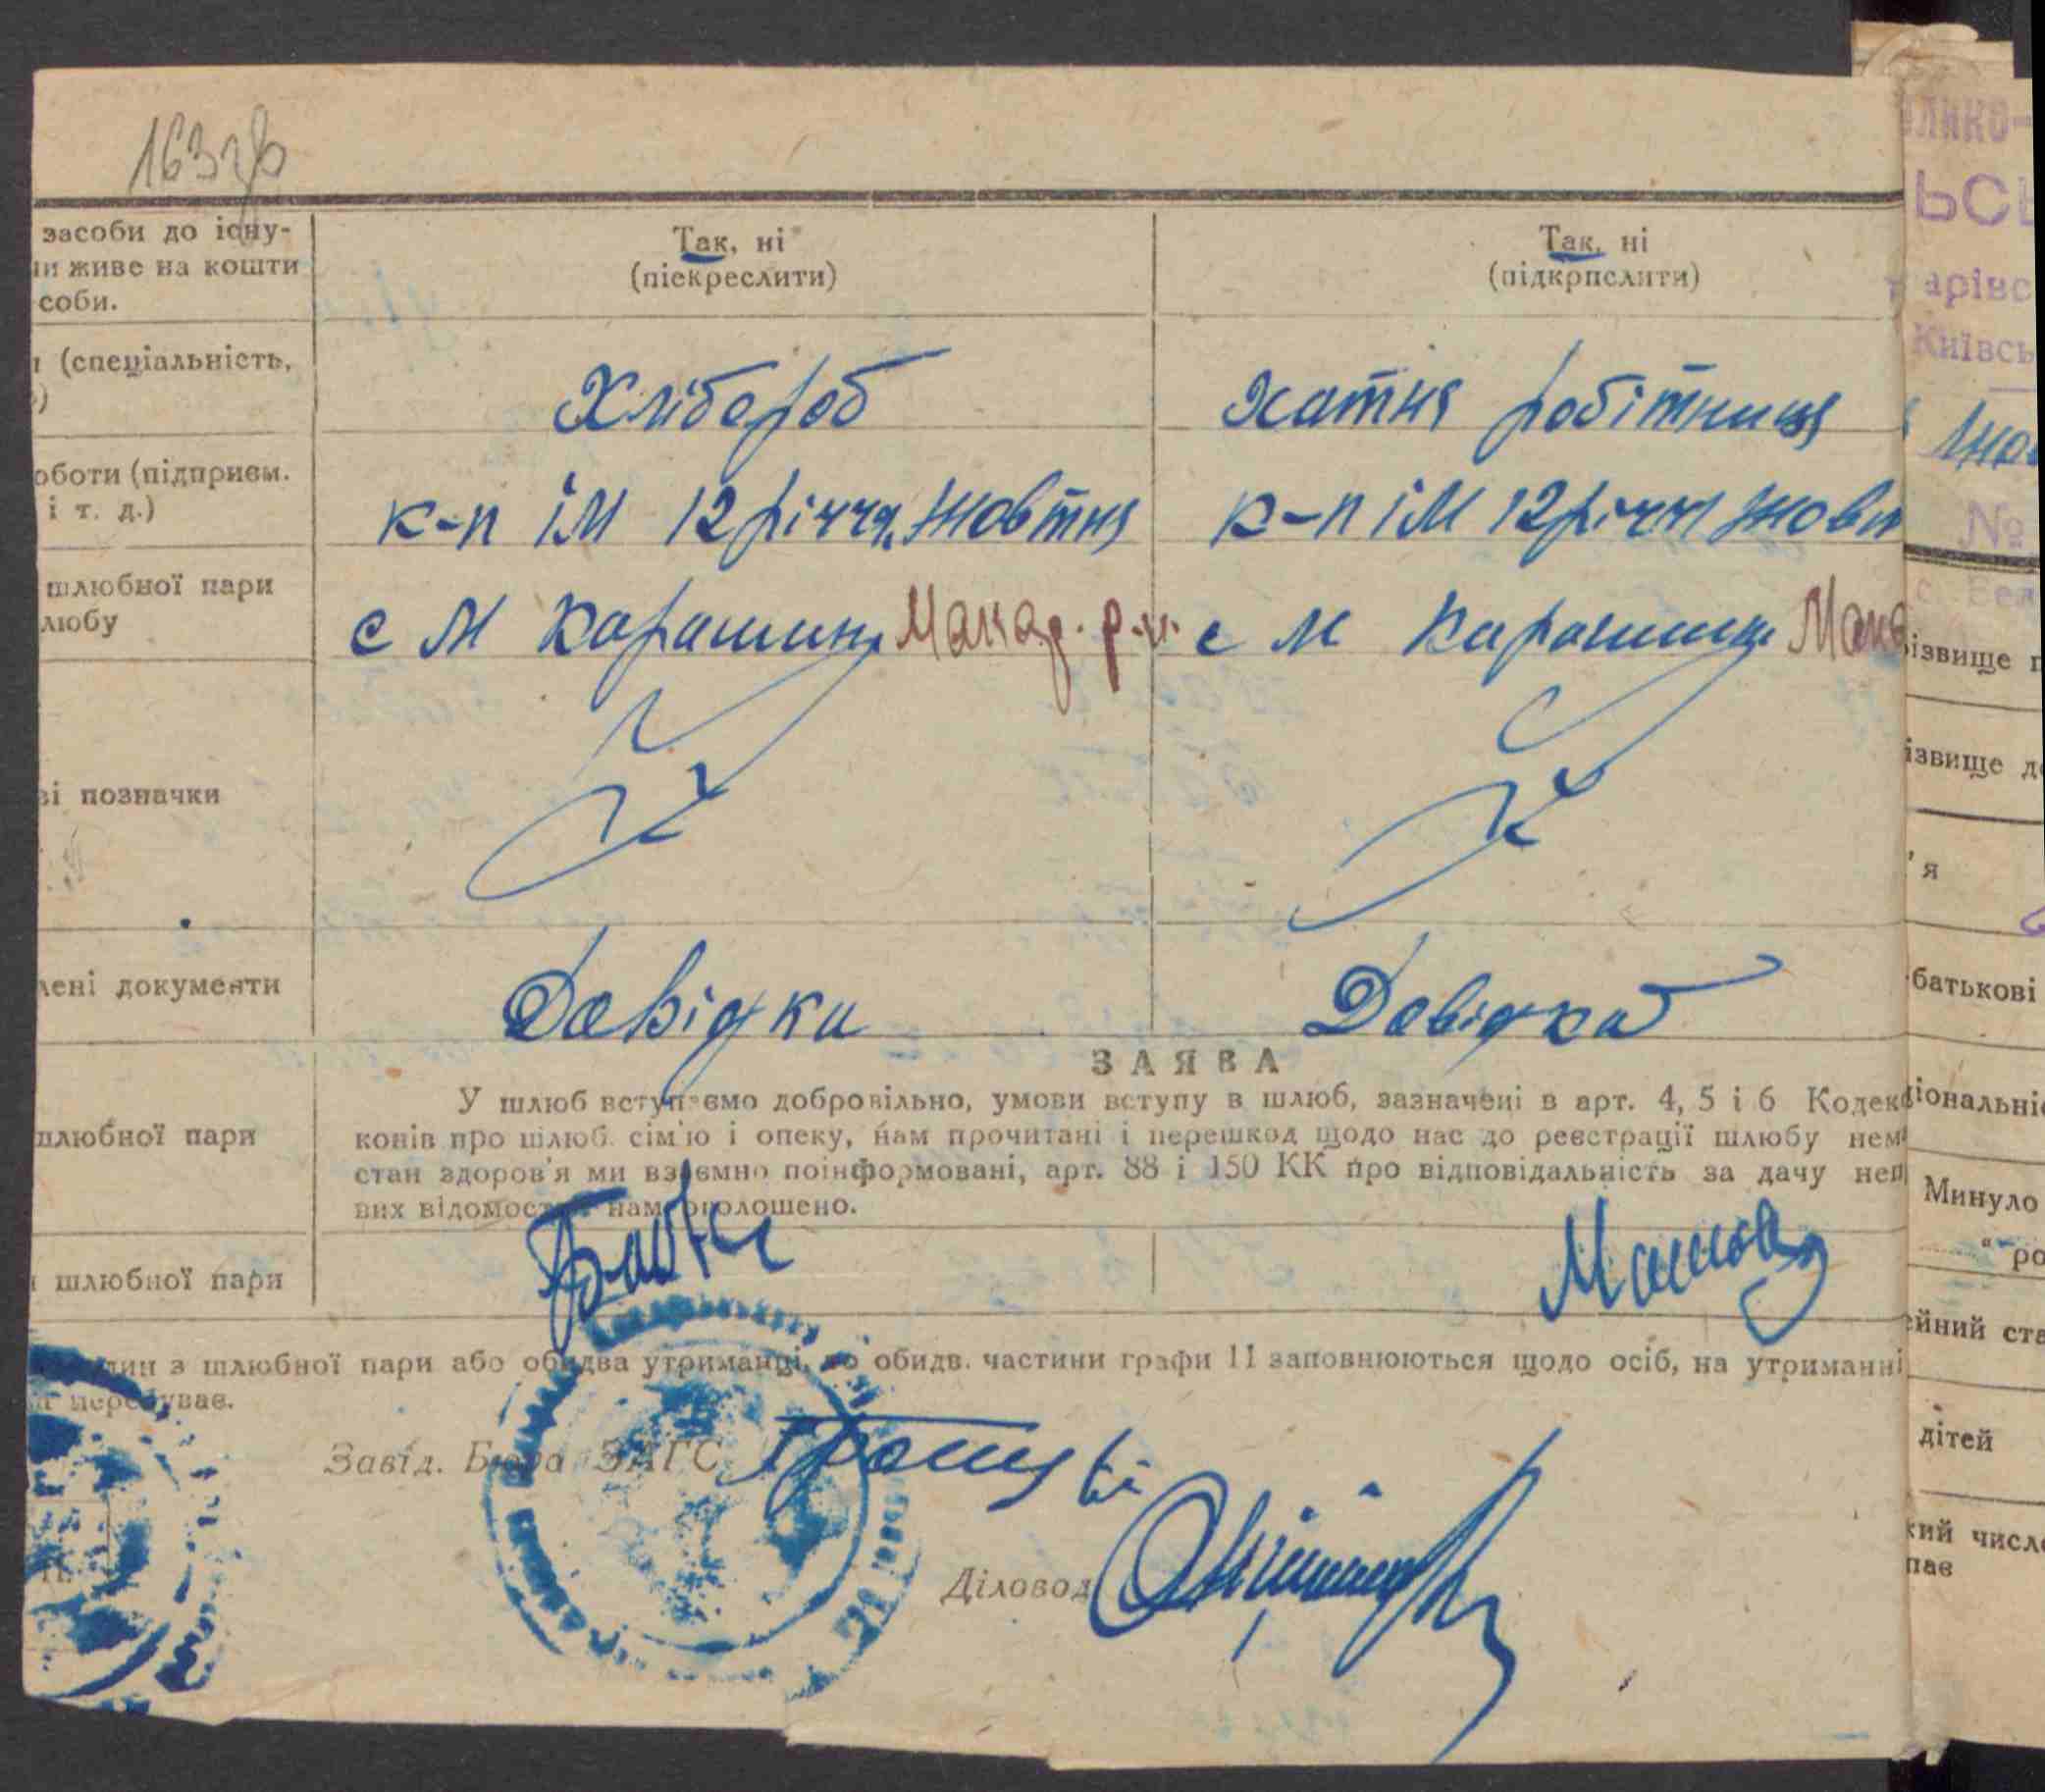 163зв
засоби до існу-
ии живе на кошти
соби.
Так, ні
(піекреслити)
Так, ні
(підкрпслити)
(спеціальність,
Хлібороб
хатня робітниця
оботи (підприєм.
і т. д.)
к-п ім 12 річчя Жовтня
к-п ім 12 річчя Жовт
шлюбної пари
любу
с М Карашин Макар. р-н.
с М Карашин Мака
ві позначки
лені документи
Довідки
Довідка
ЗАЯВА
шлюбної пари
У шлюб вступаємо добровільно, умови вступу в шлюб, зазначені в арт. 4, 5 і 6 Кодек
конів про шлюб. сім'ю і опеку, нам прочитані і перешкод щодо нас до реєстрації шлюбу нем
стан здоров'я ми взаємно поінформовані, арт. 88 і 150 КК про відповідальність за дачу неп
вих відомостей нам оголошено.
шлюбної пари
дин з шлюбної пари або обидва утриманці, то обидв. частини графи 11 заповнюються щодо осіб, на утриманні
перебуває.
Завід. Бюра ЗАГС
Діловод
ЛИКО-
ЬСЬ
арівс
Київсь
№
ізвище п
ізвище д
'я
батькові
іональні
Минуло
" ро
ейний ста
дітей
кий числ
пав